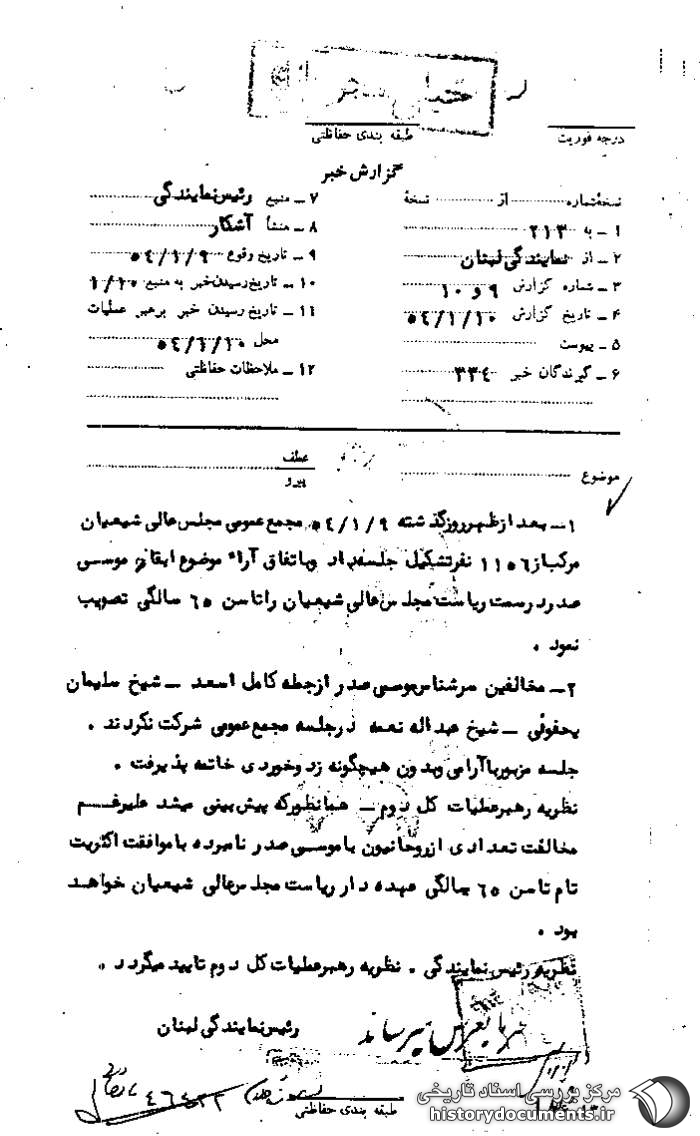 خیلی محرمانه
درجه فوریت
طبقه بندی حفاظتی
گزارش خبر
نسخه شماره از نسخهٔ
۱ – به ۲۱۳
۲ – از نمایندگی لبنان
۳ – شماره گزارش ۹ و ۱۰
۴ – تاریخ گزارش ۵۴/۱/۱۰
۵ – پیوست
۶ – گیرندگان خبر ۳۳٤
۷ – منبع رئیس نمایندگی
۸ – منشأ آشکار
۹ – تاریخ وقوع ۵٤/۱/۹
۱۰ – تاریخ رسیدن خبر به منبع ۱/۱۰
۱۱ – تاریخ رسیدن خبر برهبر عملیات
محل ۵٤/۱/۱۰
۱۲ – ملاحظات حفاظتی
موضوع
عطف
پیرو
۱– بعد از ظهر روز گذشته ۵٤/۱/۹ مجمع عمومی مجلس عالی شیعیان
مرکب از ۱۱۵۶ نفر تشکیل جلسه داد و باتفاق آراء موضوع ابقاء موسی
صدر در سمت ریاست مجلس عالی شیعیان را تا سن ۶۵ سالگی تصویب
نمود .
۲– مخالفین سرشناس موسی صدر از جمله کامل اسعد – شیخ سلیمان
یحفوفی – شیخ عبداله نعمه در جلسه مجمع عمومی شرکت نکردند .
جلسه مزبور با آرامی و بدون هیچگونه زد و خوردی خاتمه پذیرفت .
نظریه رهبر عملیات کل دوم – همانطور که پیش بینی میشد علیرغم
مخالفت تعدادی از روحانیون با موسی صدر نامبرده با موافقت اکثریت
تام تا سن ۶۵ سالگی عهده دار ریاست مجلس عالی شیعیان خواهد
بود .
نظریه رئیس نمایندگی . نظریه رهبر عملیات کل دوم تایید میگردد .
رئیس نمایندگی لبنان
طبقه بندی حفاظتی
مرکز بررسی اسناد تاریخی
historydocuments.ir